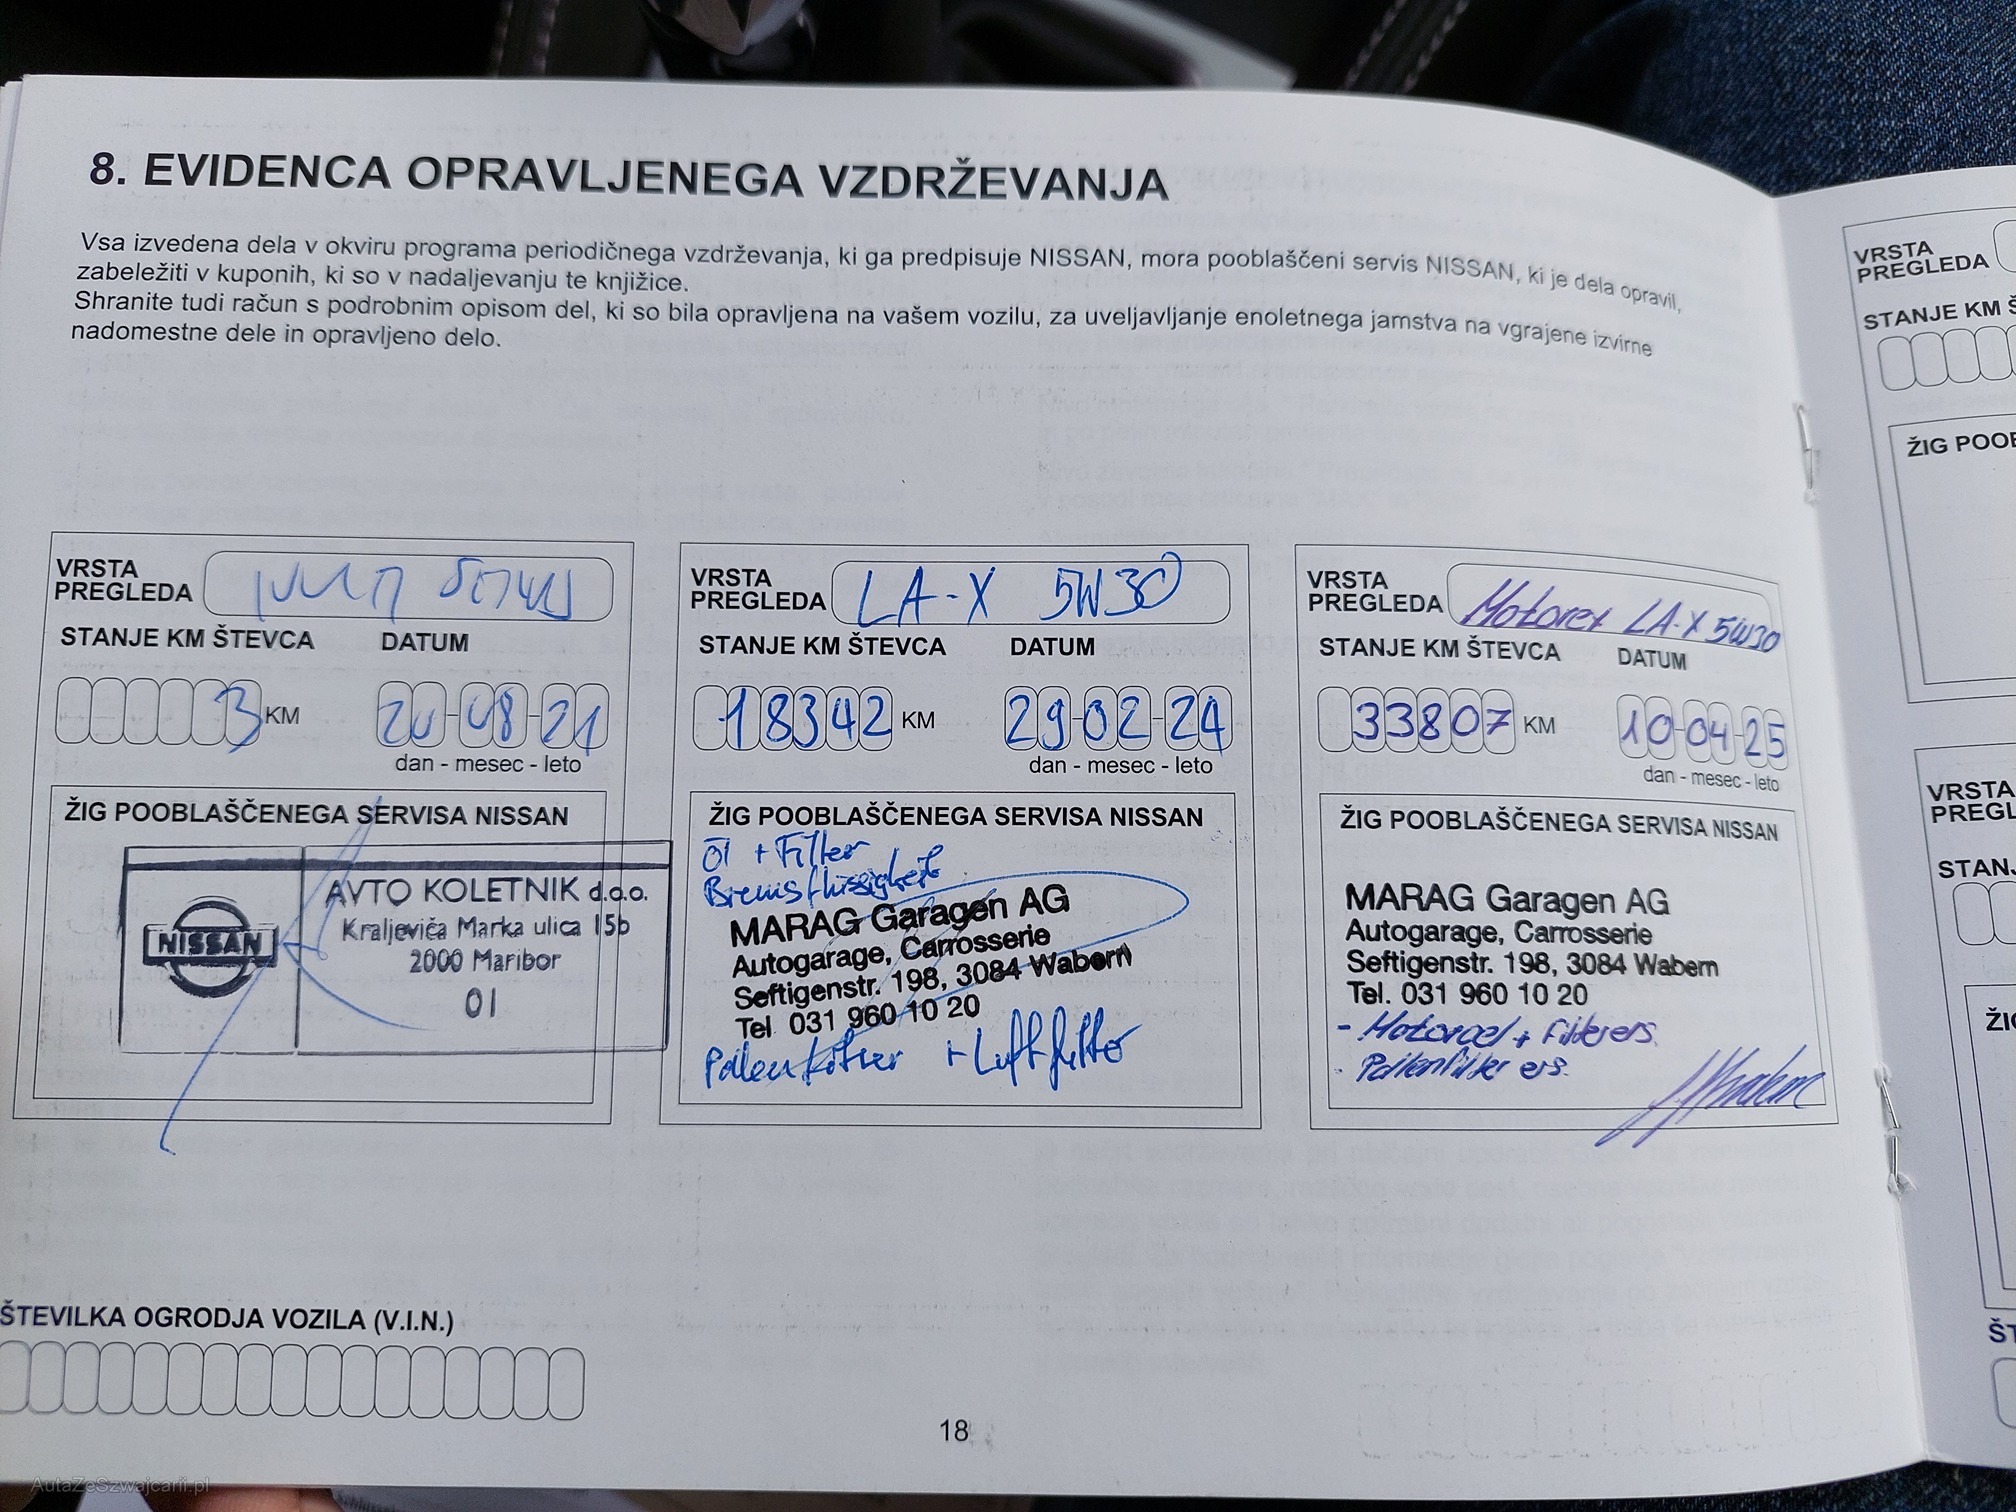 8. EVIDENCA OPRAVLJENEGA VZDRŽEVANJA
Vsa izvedena dela v okviru programa periodičnega vzdrževanja, ki ga predpisuje NISSAN, mora pooblaščeni servis NISSAN, ki je dela opravil,
zabeležiti v kuponih, ki so v nadaljevanju te knjižice.
Shranite tudi račun s podrobnim opisom del, ki so bila opravljena na vašem vozilu, za uveljavljanje enoletnega jamstva na vgrajene izvirne
nadomestne dele in opravljeno delo.
VRSTA
PREGLEDA
STANJE KM ŠTEVCA DATUM
3 KM 20-08-21
dan - mesec - leto
ŽIG POOBLAŠČENEGA SERVISA NISSAN
NISSAN
AVTO KOLETNIK d.o.o.
Kraljeviča Marka ulica 15b
2000 Maribor
01
VRSTA
PREGLEDA LA-X 5W30
STANJE KM ŠTEVCA DATUM
18342 KM 29-02-24
dan - mesec - leto
ŽIG POOBLAŠČENEGA SERVISA NISSAN
Öl + Filter
Bremsflüssigkeit
MARAG Garagen AG
Autogarage, Carrosserie
Seftigenstr. 198, 3084 Wabern
Tel 031 960 10 20
Pollenfilter + Luftfilter
VRSTA
PREGLEDA Motorex LA-X 5W30
STANJE KM ŠTEVCA DATUM
33807 KM 10-04-25
dan - mesec - leto
ŽIG POOBLAŠČENEGA SERVISA NISSAN
MARAG Garagen AG
Autogarage, Carrosserie
Seftigenstr. 198, 3084 Wabern
Tel. 031 960 10 20
- Motoroel + Filter ers.
- Pollenfilter ers.
ŠTEVILKA OGRODJA VOZILA (V.I.N.)
18
VRSTA
PREGLEDA
STANJE KM
VRSTA
AutaZeSzwajcarii.pl